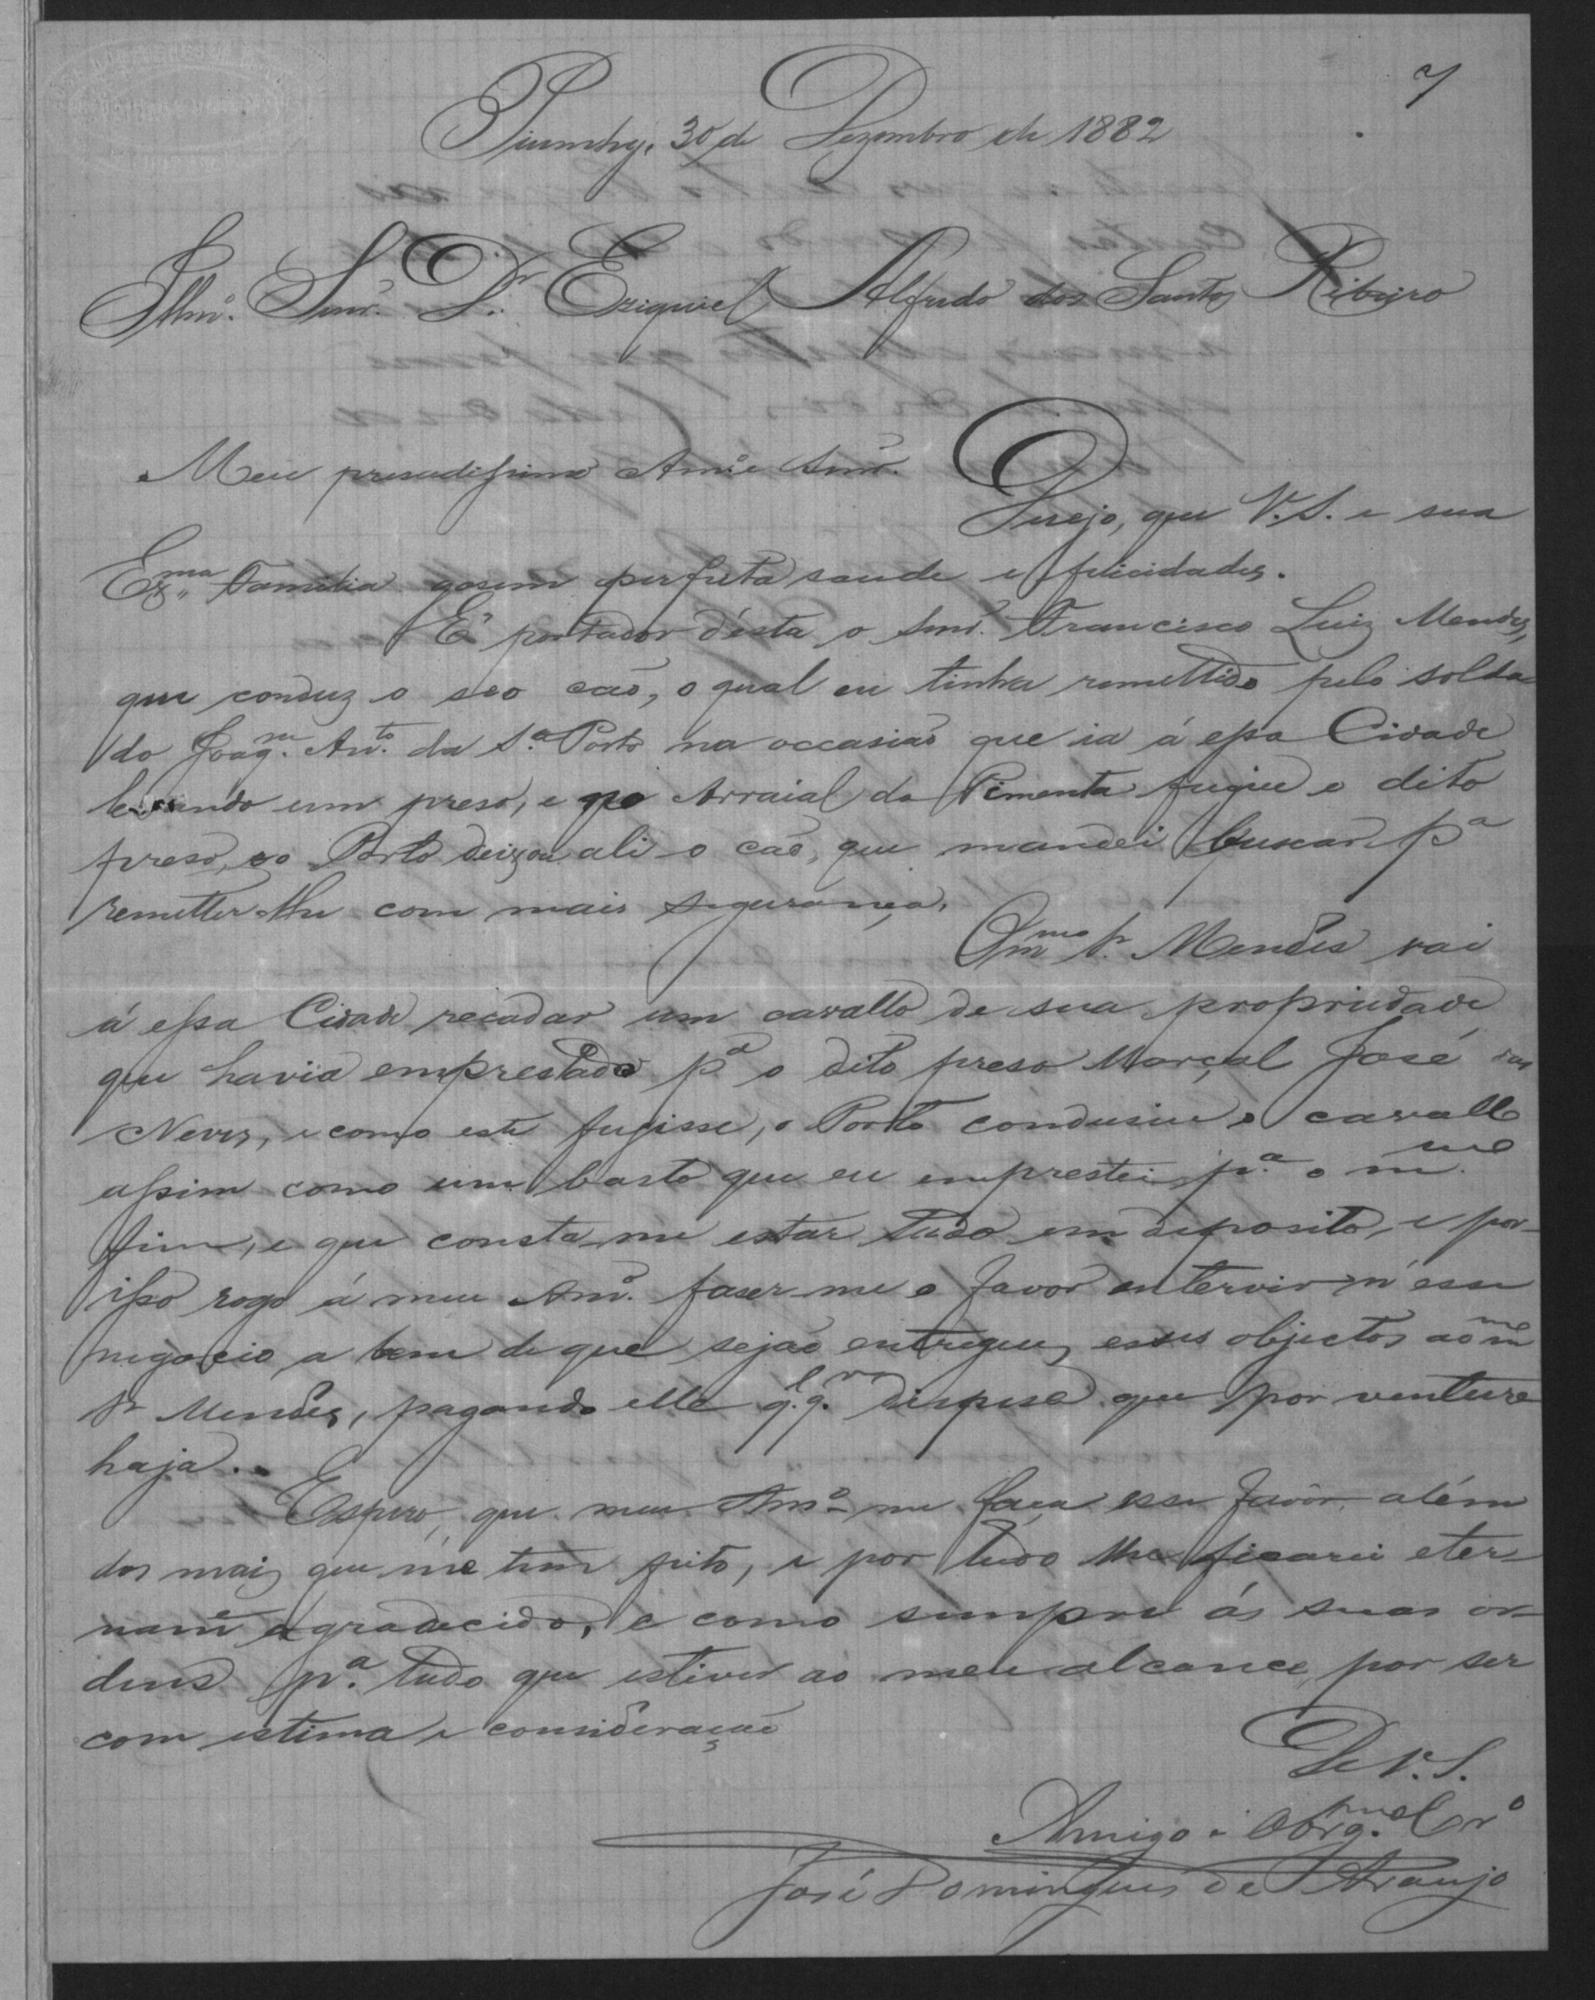 7
Piumhy, 30 de Dezembro de 1882
Illmo. Snr. Dr. Eziquiel Alfredo dos Santos Ribeiro
Meu presadissimo Amo. e Snr.
Desejo, que V.S. e sua
Exma. Familia gosem perfeita saude e felicidades.
É portador désta o Snr. Francisco Luiz Mendes,
que conduz o seo cão, o qual eu tinha remettido pelo solda
do Joaqm. Anto. da Sa. Porto na occasião que ia á essa Cidade
levando um preso, e no Arraial da Pimenta fugiu o dito
preso, e o Porto deixou ali o cão, que mandei buscar pa
remetter-lhe com mais segurança.
O mmo Sr. Mendes vai
á essa Cidade recadar um cavallo de sua propriedade
que havia emprestado pa o dito preso Marçal José das
Neves, e como este fugisse, o Porto condusiu o cavallo
assim como um basto que eu emprestei pa. o mmo.
fim, e que consta-me estar tudo em deposito, e por-
isso rogo á meu Amo. faser-me o favor intervir n'esse
negocio, a bem de que sejão entregues esses objectos ao mmo
Sr Mendes, pagando elle qlqr. despesa que por ventura
haja.
Espero, que meu Amo. me faça esse favôr, além
dos mais que me tem feito, e por tudo lhe ficarei eter-
namte agradecido, e como sempre ás suas or-
dens pa. tudo que estiver ao meu alcance, por ser
com estima e consideração
De V.S.
Amigo e Obrgmo. Cro
José Domingues de Araujo